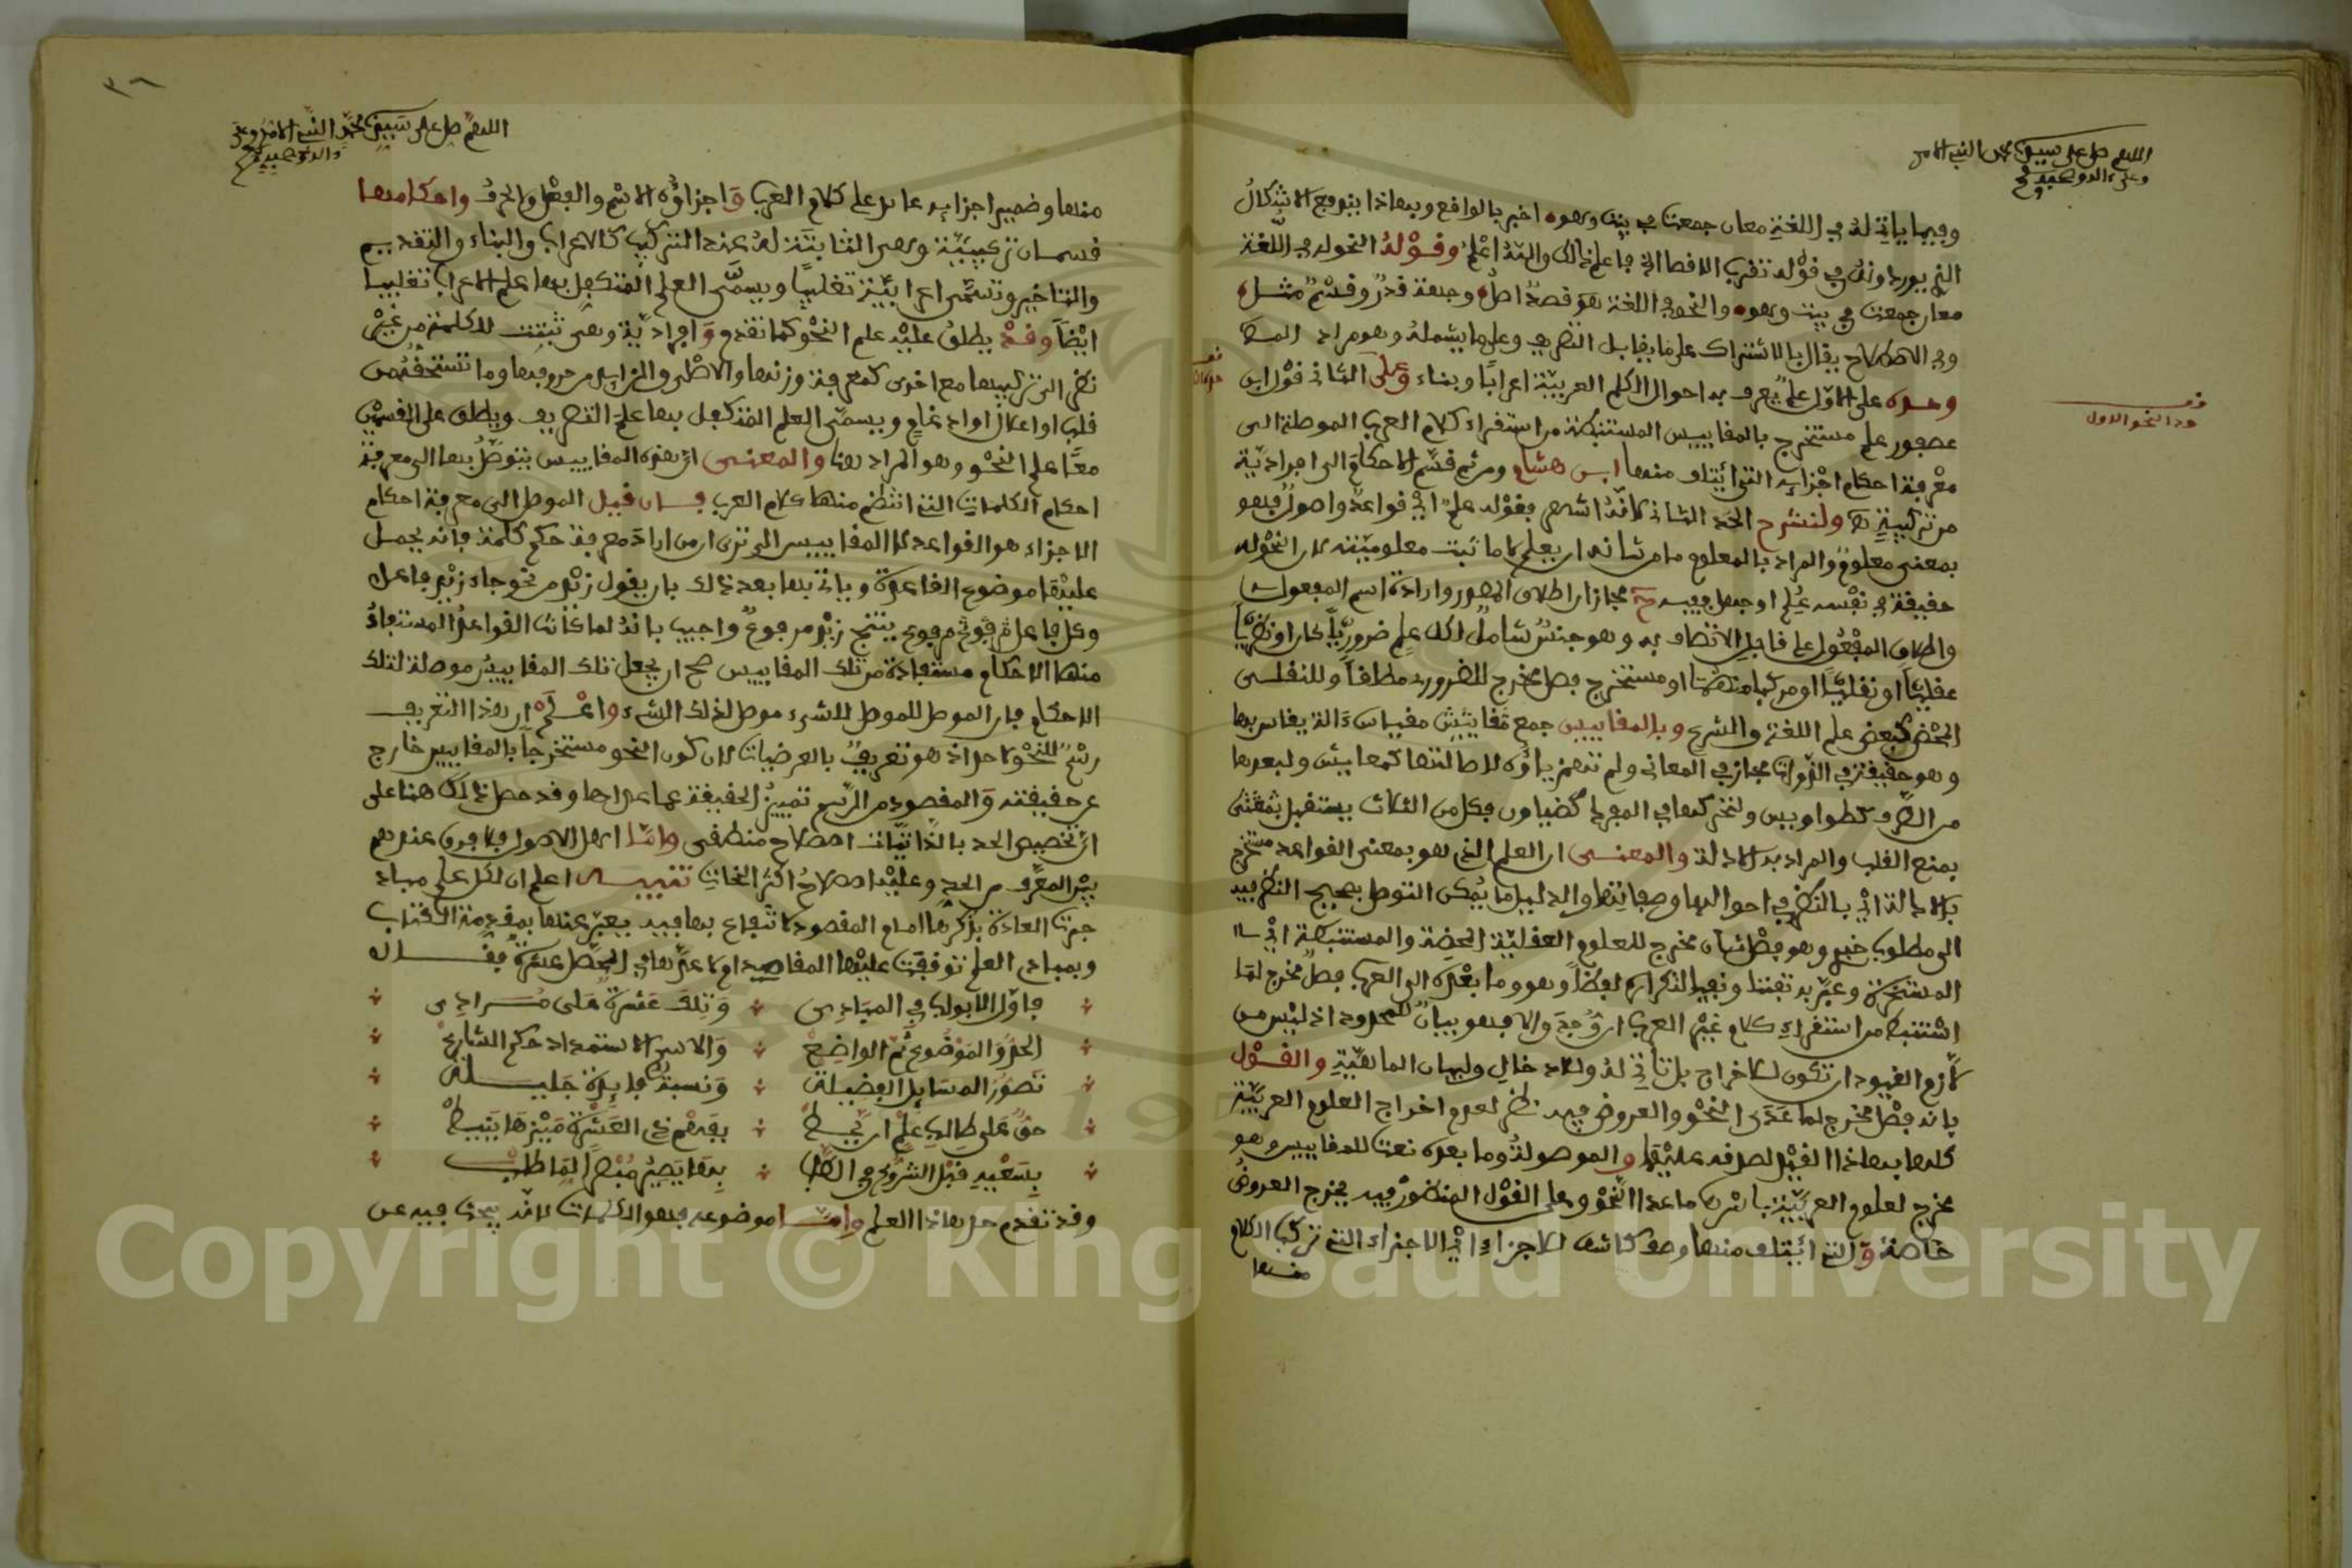 اللهم صل على سيدنا محمد النبي الامي
وعلى ءاله وصحبه
وفيما ياتي له في اللغة معان جمعت في بيت وهوه اخبر بالواقع وبهاذا يندفع الاشكال
الذي يوردونه في قوله تقرب الاقصا اي فاعلم ذالك والله اعلم وقوله النحو له في اللغة
معان جمعت في بيت وهوه والنحو في اللغة هو قصد اصل وجهة قدر وقسم مثل
وفي الاصطلاح يقال بالاشتراك على ما يقابل التصريف وعلى ما يشمله وهو مراد المص
وحده على الاول علم يعرف به احوال الكلم العربية اعرابا وبناء وعلى الثاني قول ابن
عصفور علم مستخرج بالمقاييس المستنبطة من استقراء كلام العرب الموصلة الى
معرفة احكام اجزايه التي ائتلف منها ابن هشام ومن ثم قسم الاحكام الى افرادية
من تركيبية ولنشرح الحد الثاني لانه اشهر فقوله علم اي قواعد واصول فهو
بمعنى معلوم والمراد بالمعلوم ما من شانه ان يعلم لا ما ثبت معلوميته لان النحو له
حقيقة في نفسه علم او جهل ففيه مجازان اطلاق المصدر وارادة اسم المفعول
واطلاق المفعول على قابل الاتصاف به وهو جنس شامل لكل علم ضروريا كان او نظريا
عقليا او نقليا او مركبا منهما او مستخرج فصل مخرج للضروري مطلقا وللنقلي
المحض كبعض علم اللغة والشرع وبالمقاييس جمع مقاييس مقياس ءالة يقاس بها
وهو حقيقة في الذوات مجاز في المعاني ولم تهمز ياؤه لاصالتها كمعايش ولبعدها
من الطرف كطواويس ولتحركها في المفرد كضياون فكل من الثلاث يستقل بمقتضى
بمنع القلب والمراد به الادلة والمعنى ان العلم الذي هو بمعنى القواعد مستخرج
بالادلة اي بالنظر في احوالها وصفاتها والدليل ما يمكن التوصل بصحيح النظر فيه
الى مطلوب خبري وهو فصل ثان مخرج للعلوم العقلية المحضة والمستنبطة اي
المستخرجة وعبر به تفننا ونفيا للتكرار لفظا وهو وما بعده الى العرب فصل مخرج لما
استنبط من استقراء كلام غير العرب ان وجد والا فهو بيان للمحدود اذ ليس من
لازم القيود ان تكون للاخراج بل تاتي له وللادخال ولبيان الماهية والقول
بانه فصل مخرج لما عدى النحو والعروض فيه نظر لعدم اخراج العلوم العربية
كلها بهاذا القيد لصدقه عليها والموصولة وما بعده نعت للمقاييس وهو
مخرج لعلوم العربية باسرها ما عدا النحو وعلى القول المنظور فيه يخرج العروض
خاصة والتي ائتلف منها وصف كاشف للاجزاء اي الاجزاء التي تركب الكلام
منها
حد النحو الاول
اللهم صل على سيدنا محمد النبي الامي وعلى
ءاله وصحبه
منها وضمير اجزايه عايد على كلام العرب واجزاؤه الاسم والفعل والحرف واحكامها
قسمان تركيبية وهي الثابتة له عند التركيب كالاعراب والبناء والتقديم
والتاخير وتسمى اعرابية تغليبا ويسمى العلم المتكفل بها علم الاعراب تغليبا
ايضا وقد يطلق عليه علم النحو كما تقدم وافرادية وهي ثبتت للكلمة من غير
نظر الى تركيبها مع اخرى كمعرفة وزنها والاصلي والزايد من حروفها وما تستحقه من
قلب او اعلال او ادغام ويسمى العلم المتكفل بها علم التصريف ويطلق على القسمين
معا علم النحو وهو المراد هنا والمعنى ان هذه المقاييس يتوصل بها الى معرفة
احكام الكلمات التي انتظم منها كلام العرب فان قيل الموصل الى معرفة احكام
الاجزاء هو القواعد لا المقاييس الا ترى ان من اراد معرفة حكم كلمة فانه يحمل
عليها موضوع القاعدة وياتي بها بعد ذلك بان يقول زيد من نحو جاء زيد فاعل
وكل فاعل مرفوع ينتج زيد مرفوع واجيب بانه لما كانت القواعد المستفاد
منها الاحكام مستفادة من تلك المقاييس صح ان يجعل تلك المقاييس موصلة لتلك
الاحكام فان الموصل للموصل للشيء موصل لذلك الشيء واعلم ان هذا التعريف
رسم للنحو لا حد اذ هو تعريف بالعرضيات لان كون النحو مستخرجا بالمقاييس خارج
عن حقيقته والمقصود من الرسم تمييز الحقيقة عما عداها وقد حصل ذلك هنا على
ان تخصيص الحد بالذاتيات اصطلاح منطقي واما اهل الاصول فلا فرق عندهم
بين المعرف من الحد وعليه اصطلاح اكثر النحات تنبيه اعلم ان لكل علم مباد
جرت العادة بذكرها امام المقصود لانتفاع بها فيه يعبر عنها بمقدمة الكتاب
وبمبادي العلم توقفت عليها المقاصد اولا عبر بها في المحصل عشرة فقال
فاول الابواب في المبادي وتلك عشرة على مرادي
الحد والموضوع ثم الواضع والاسم الاستمداد حكم الشارع
تصور المسايل الفضيلة ونسبة فايدة جليلة
حق على طالب علم ان يحيط بفهم ذي العشرة ميزها ينيط
بسعيه قبل الشروع في الطلب بها يصير مبصرا لما طلب
وقد تقدم حد هاذا العلم واما موضوعه فهو الكلمات لانه يبحث فيه عن